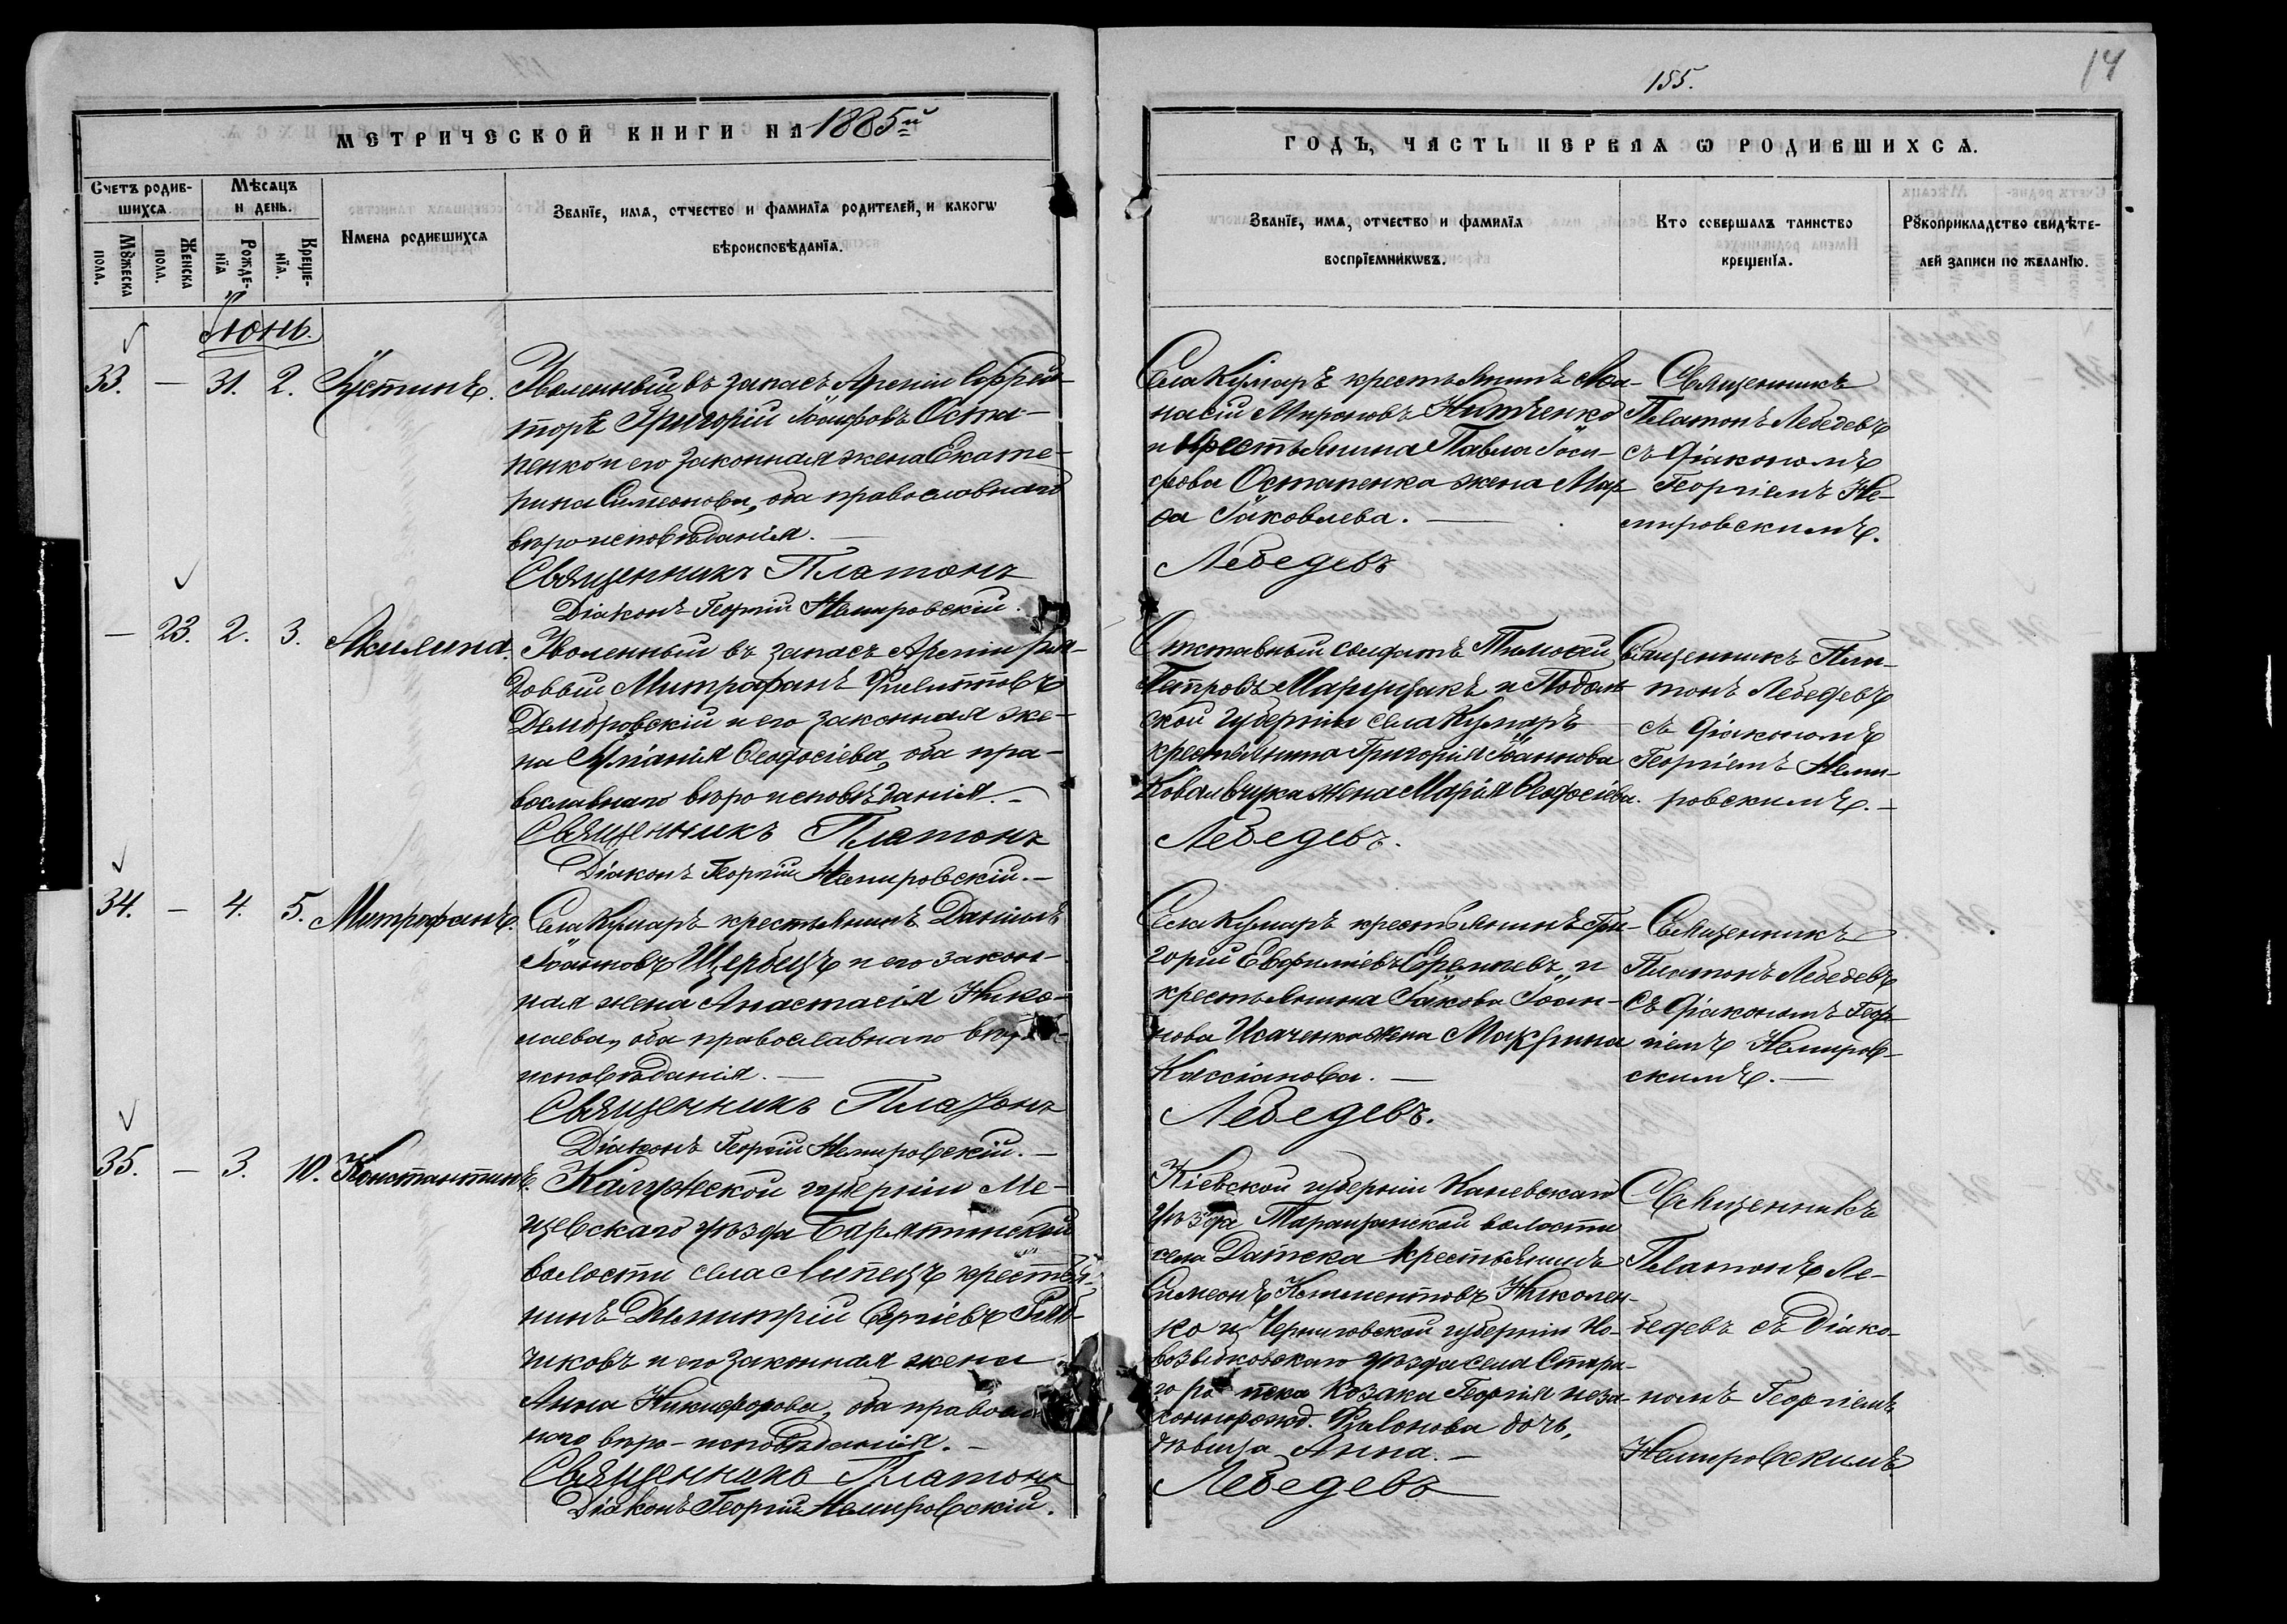 155.
14
МЕТРИЧЕСКОЙ КНИГИ НА 1885й
ГОДЪ, ЧАСТЬ ПЕРВАЯ Ѡ РОДИВШИХСѦ.
Счетъ родив-
шихсѧ
Мѣсѧцъ
и день.
Мꙋжеска
пола.
Женска
пола.
Рожде-
нїѧ
Креще-
нїѧ.
Имена родившихсѧ
Званїе, имѧ, отчество и фамилїѧ родителей, и какогѡ
вѣроисповѣданїѧ.
Званїе, имѧ, отчество и фамилїѧ
воспрїемникѡвъ.
Кто совершалъ таинство
крещенїѧ.
Рꙋкоприкладство свидѣте-
лей записи по желанїю.
Іюнь.
33. — 31. 2. Іустинъ.
Уволенный въ запасъ Арміи Ефрей-
торъ Григорій Іосифовъ Оста-
пенко и его законная жена Екате-
рина Симеонова, оба православнаго
вѣроисповѣданія.
Священникъ Платонъ
Діаконъ Георгій Немировскій.
Села Кумаръ крестьянинъ
насій Мироновъ Нитченко
и крестьянина Павла Іоси-
фова Остапенка жена Мар-
ѳа Іаковлева.
Лебедевъ
Священникъ
Платонъ Лебедевъ
съ діакономъ
Георгіемъ Не-
мировскимъ.
— 23. 2. 3. Акилина.
Уволенный въ запасъ Арміи ря-
довый Митрофанъ Филипповъ
Домбровскій и его законная же-
на Іуліанія Ѳеодосіева, оба пра-
вославнаго вѣроисповѣданія.
Священникъ Платонъ
Діаконъ Георгій Немировскій.
Отставный солдатъ Тимоѳей
Петровъ Марущакъ и Подоль-
ской губерніи села Кумаръ
крестьянина Григорія Іоаннова
Ковальчука жена Марія Ѳеодосіева.
Лебедевъ.
Священникъ Пла-
тонъ Лебедевъ
съ діакономъ
Георгіемъ Неми-
ровскимъ.
34. — 4. 5. Митрофанъ.
Села Кумаръ крестьянинъ Даніилъ
Іоанновъ Щербецъ и его закон-
ная жена Анастасія Нико-
лаева, оба православнаго вѣро-
исповѣданія.
Священникъ Платонъ
Діаконъ Георгій Немировскій.
Села Кумаръ крестьянинъ Гри-
горій Евфиміевъ Еремѣевъ и
крестьянина Іакова Іоан-
нова Исаченка жена Макрина
Кассіанова.
Лебедевъ.
Священникъ
Платонъ Лебедевъ
съ діакономъ Геор-
гіемъ Немиров-
скимъ.
35. — 3. 10. Константинъ.
Калужской губерніи Ме-
щевскаго уѣзда Барятинской
волости села Липецъ крестья-
нинъ Димитрій Сергіевъ
чиковъ и его законная жена
Анна Никифорова, оба правосл
наго вѣро-исповѣданія.
Священникъ Платонъ
Діаконъ Георгій Немировскій.
Кіевской губерніи Каневскаго
уѣзда Таращанской волости
села крестьянинъ
Симеонъ Климентовъ Николен-
ко и Черниговской губерніи Но-
возыбковскаго уѣзда села Стари-
козака Георгія неза-
коннорожд. Филонова дочь,
дѣвица Анна.
Лебедевъ
Священникъ
Платонъ Ле-
бедевъ съ Діако-
номъ Георгіемъ
Немировскимъ